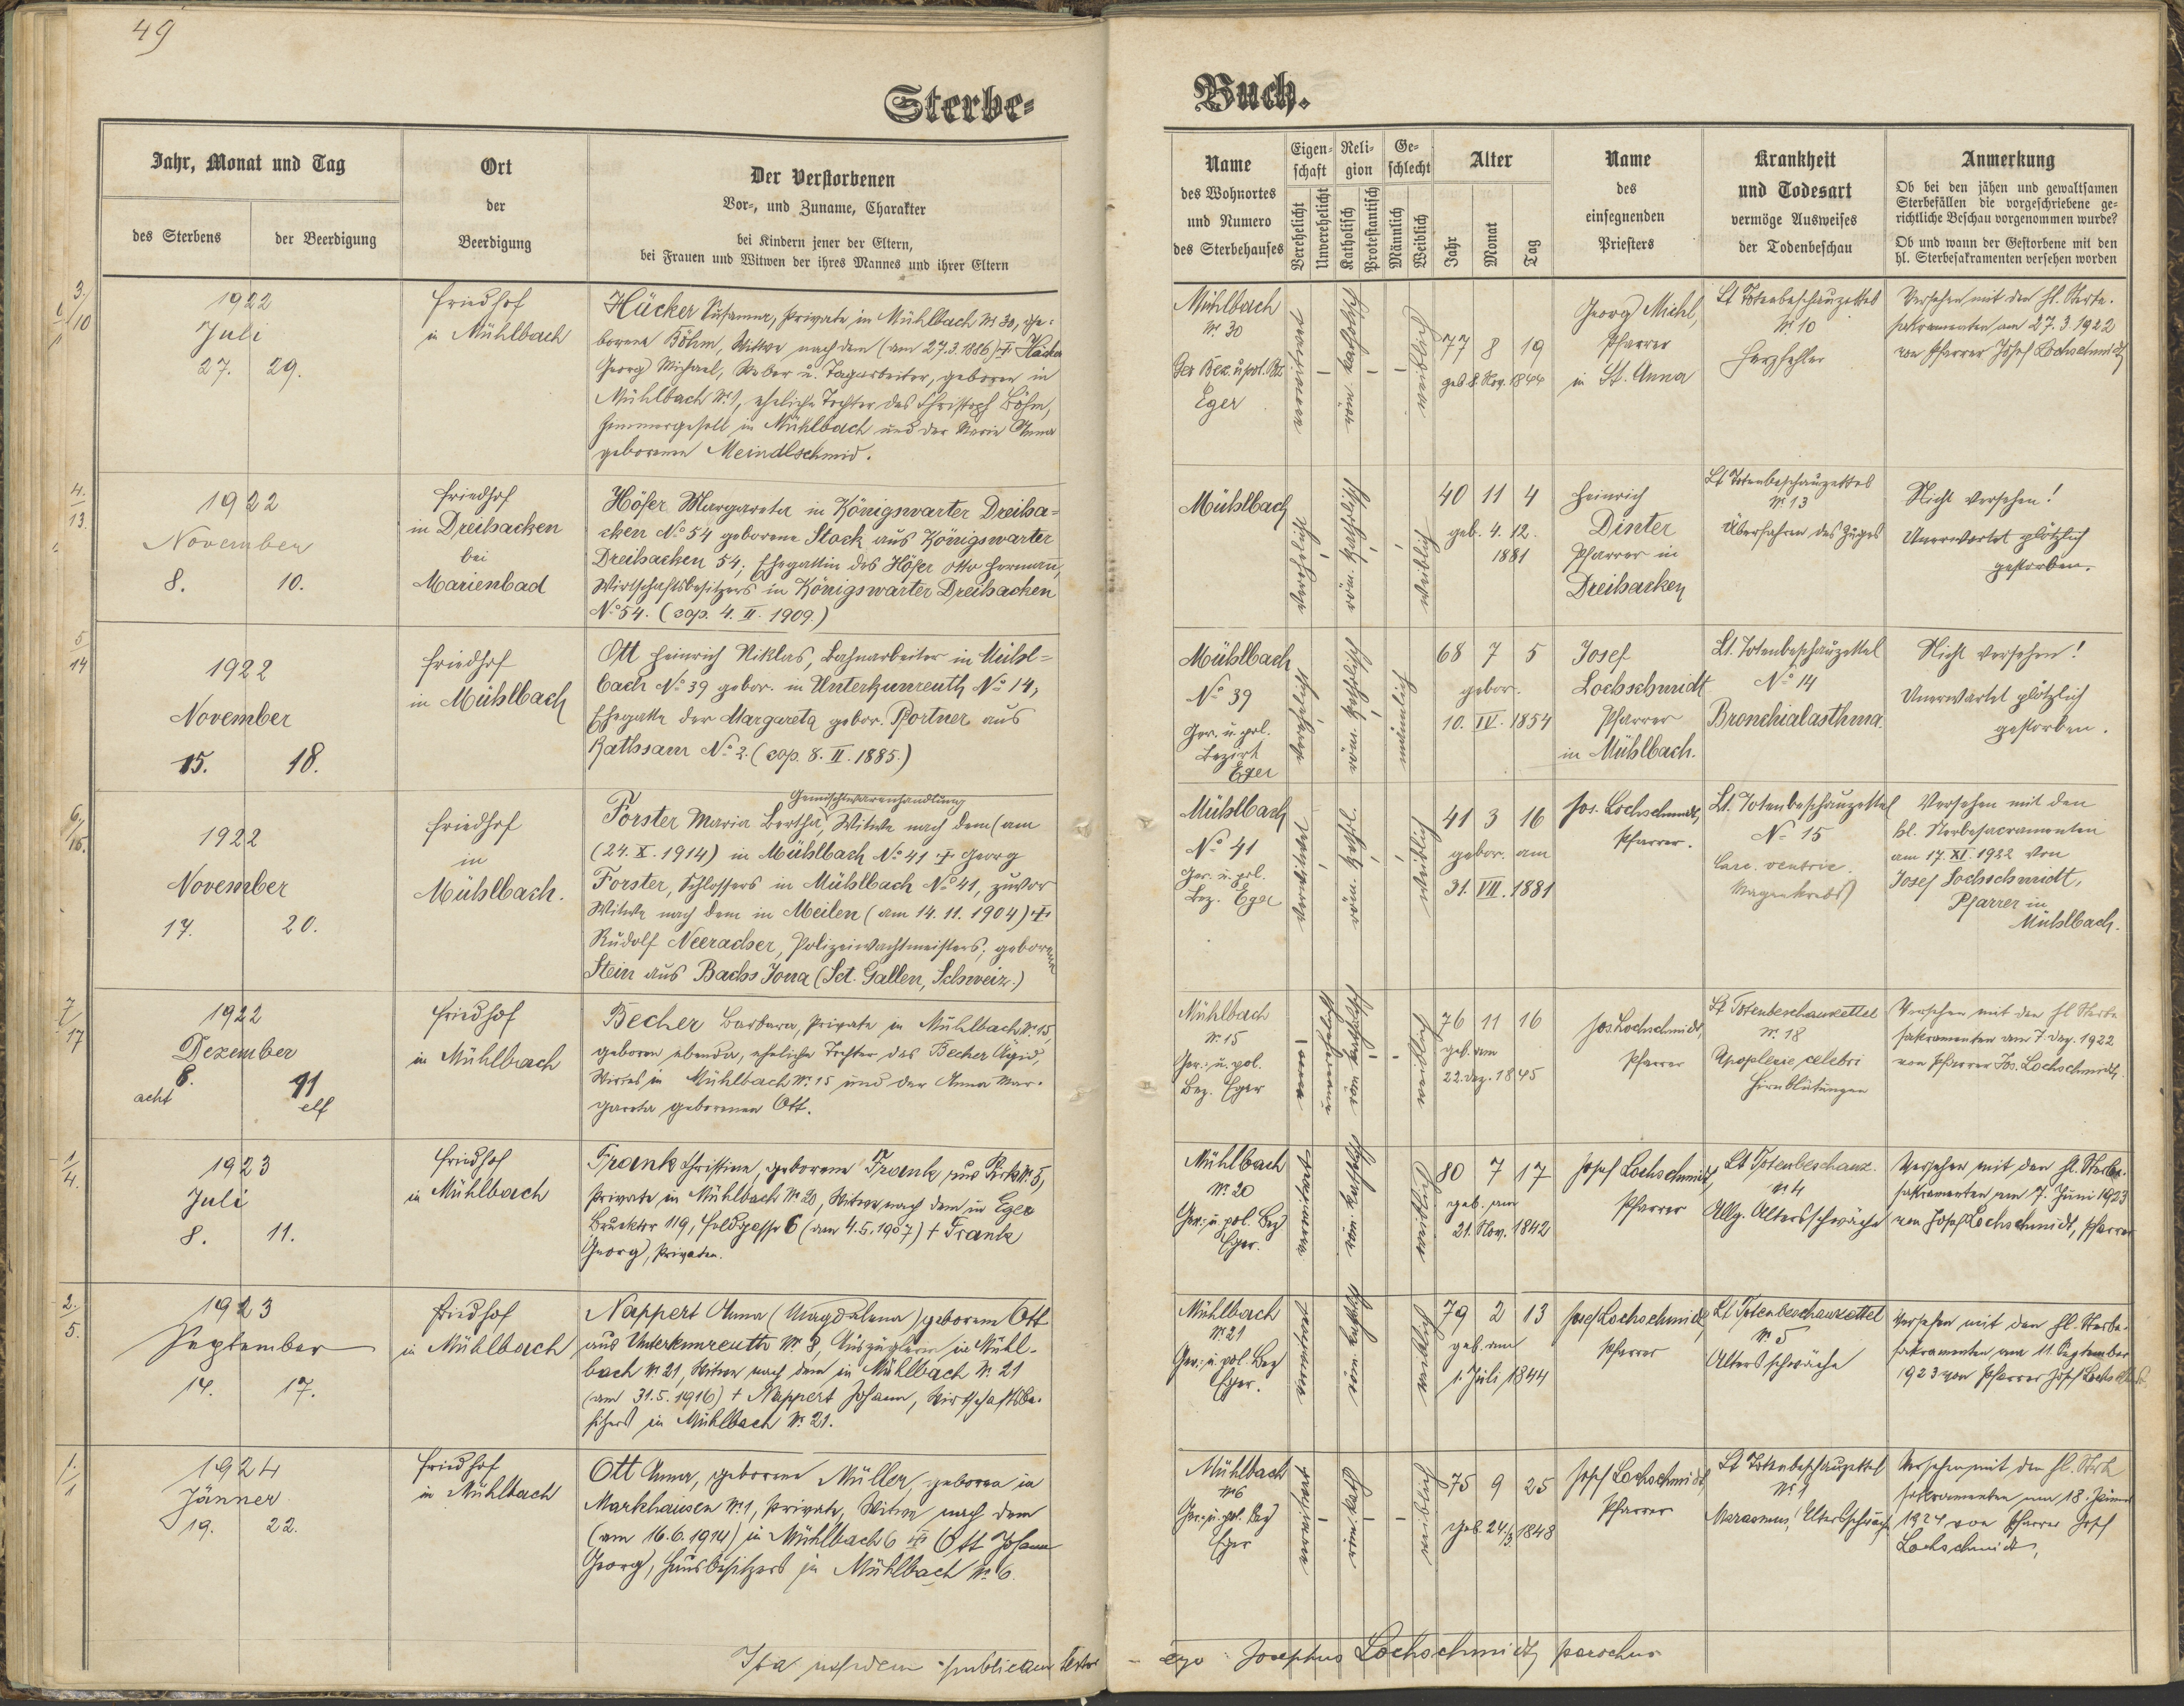 49
Sterbe-
Buch.
Jahr, Monat und Tag
des Sterbens
der Beerdigung
Ort
der
Beerdigung
Der Verstorbenen
Vor-, und Zuname, Charakter
bei Kindern jener der Eltern,
bei Frauen und Witwen der ihres Mannes und ihrer Eltern
Name
des Wohnortes
und Numero
des Sterbehauses
Eigen-
schaft
Verehelicht
Unverehelicht
Reli-
gion
Katholisch
Protestantisch
Ge-
schlecht
Männlich
Weiblich
Alter
Jahr
Monat
Tag
Name
des
einsegnenden
Priesters
Krankheit
und Todesart
vermöge Ausweises
der Todenbeschau
Anmerkung
Ob bei den jähen und gewaltsamen
Sterbefällen die vorgeschriebene ge-
richtliche Beschau vorgenommen wurde?
Ob und wann der Gestorbene mit den
hl. Sterbesakramenten versehen worden
3./10
1922
Juli
27. 29.
Friedhof
in Mühlbach
Häcker Susanna, Private in Mühlbach Nr 30, ge-
borene Böhm, Witwe nach dem (am 27.3.1886) † Häcker
Georg Michael, Weber u. Tagarbeiter, geboren in
Mühlbach Nr. 1, eheliche Tochter des Christoph Böhm,
Zimmergesell in Mühlbach und der Maria Anna
geborenen Meindlschmid.
Mühlbach
Nr. 30
Ger. Bez. u. pol. Bz.
Eger
verwitwet
röm. katholisch
weiblich
77 8 19
geb. 8. Nov. 1844
Georg Michl,
Pfarrer
in St. Anna
Lt Totenbeschauzettel
Nr 10
Herzfehler
Versehen mit den hl. Sterbe-
sakramenten am 27.3.1922
von Pfarrer Josef Lochschmidt
4./13.
1922
November
8. 10.
Friedhof
in Dreihacken
bei
Marienbad
Höfer Margareta in Königswarter Dreiha-
cken No 54 geborene Stock aus Königswarter
Dreihacken 54; Ehegattin des Höfer Otto Hermann,
Wirtschaftsbesitzers in Königswarter Dreihacken
No 54. (cop. 4. II. 1909.)
Mühlbach
verehelicht
röm. katholisch
weiblich
40 11 4
geb. 4. 12.
1881
Heinrich
Dinter
Pfarrer in
Dreihacken
Lt Totenbeschauzettel
Nr 13
Überfahren des Zuges
Nicht versehen!
Unerwartet plötzlich
gestorben.
5/14
1922
November
15. 18.
Friedhof
in Mühlbach
Ott Heinrich Niklas, Bahnarbeiter in Mühl-
bach No 39 gebor. in Unterkunreuth No 14,
Ehegatte der Margareta gebor. Portner aus
Rathsam No 2. (cop. 8. II. 1885.)
Mühlbach
No 39
Ger. u. pol.
Bezirk
Eger
verehelicht
röm. katholisch
männlich
68 7 5
gebor.
10. IV. 1854
Josef
Lochschmidt
Pfarrer
in Mühlbach.
Lt. Totenbeschauzettel
No 14
Bronchialasthma.
Nicht versehen!
Unerwartet plötzlich
gestorben.
6./15.
1922
November
17. 20.
Friedhof
in
Mühlbach.
Gemischtwarenhandlung
Forster Maria Bertha, Witwe nach dem (am
(24. X. 1914) in Mühlbach No 41 † Georg
Forster, Schlossers in Mühlbach No 41, zuvor
Witwe nach dem in Meilen (am 14. 11. 1904) †
Rudolf Neeracher, Polizeiwachtmeisters; geborene
Stein aus Bachs Jona (Sct. Gallen, Schweiz.)
Mühlbach
No 41
Ger. u. pol.
Bez. Eger
verwitwet
röm. kathol.
weiblich
41 3 16
gebor. am
31. VII. 1881
Jos. Lochschmidt,
Pfarrer.
Lt. Totenbeschauzettel
No 15
Carc. ventric.
Magenkrebs)
Versehen mit den
hl. Sterbesacramenten
am 17. XI. 1922 von
Josef Lochschmidt,
Pfarrer in
Mühlbach.
7/17
1922
Dezember
8. 11
acht elf
Friedhof
in Mühlbach
Becher Barbara, Private in Mühlbach Nr. 15,
geboren ebenda, eheliche Tochter des Becher Ägid,
Wirtes in Mühlbach Nr. 15 und der Anna Mar-
gareta geborenen Ott.
Mühlbach
Nr. 15
Ger.- u. pol.
Bez. Eger
unverehelicht
röm. katholisch
weiblich
76 11 16
geb. am
22. Dez. 1845
Jos Lochschmidt,
Pfarrer
Lt Totenbeschauzettel
Nr. 18
Apoplexie celebri
Hirnblutungen
Versehen mit den hl Sterbe
sakramenten am 7. Dez. 1922
von Pfarrer Jos. Lochschmidt.
1/4.
1923
Juli
8. 11.
Friedhof
in Mühlbach
Frank Christine, geborene Frank aus Pirk Nr. 5,
Private in Mühlbach Nr. 20, Witwe nach dem in Eger
Brucktor 119, Feldgasse 6 (am 4.5.1907) † Frank
Georg, Privaten.
Mühlbach
Nr. 20
Ger.- u. pol. Bez
Eger.
verwitwet
röm. katholisch
weiblich
80 7 17
geb. am
21. Nov. 1842
Josef Lochschmidt,
Pfarrer
Lt Totenbeschauz.
Nr 4
Allg. Altersschwäche
Versehen mit den hl. Sterbe-
sakramenten am 7. Juni 1923
von Josef Lochschmidt, Pfarrer
2./5.
1923
September
14. 17.
Friedhof
in Mühlbach
Nappert Anna (Magdalena) geborene Ott
aus Unterkunreuth Nr. 8, Auszüglerin in Mühl-
bach Nr. 21, Witwe nach dem in Mühlbach Nr. 21
(am 31.5.1916) † Nappert Johann, Wirtschaftsbe-
sitzers in Mühlbach Nr. 21.
Mühlbach
Nr. 21
Ger.- u. pol. Bez
Eger.
verwitwet
röm. kathol.
weiblich
79 2 13
geb. am
1. Juli 1844
Josef Lochschmidt,
Pfarrer
Lt Totenbeschauzettel
Nr. 5
Altersschwäche
Versehen mit den hl. Sterbe-
sakramenten am 11. September
1923 von Pfarrer Josef Lochschmidt.
1./1
1924
Jänner
19. 22.
Friedhof
in Mühlbach
Ott Anna, geborene Müller, geboren in
Markhausen Nr. 1, Private, Witwe nach dem
(am 16.6.1914) in Mühlbach 6 † Ott Johann
Georg, Hausbesitzers in Mühlbach Nr. 6.
Mühlbach
Nr 6
Ger.- u. pol. Bez
Eger
verwitwet
röm. kath.
weiblich
75 9 25
geb. 24./3. 1848
Josef Lochschmidt,
Pfarrer
Lt Totenbeschauzettel
Nr 1
Marasmus, Altersschwäche
Versehen mit den hl. Sterbe
sakramenten am 18. Jänner
1924 von Pfarrer Josef
Lochschmidt,
Ita publicam testor
ego Josephus Lochschmidt parochus